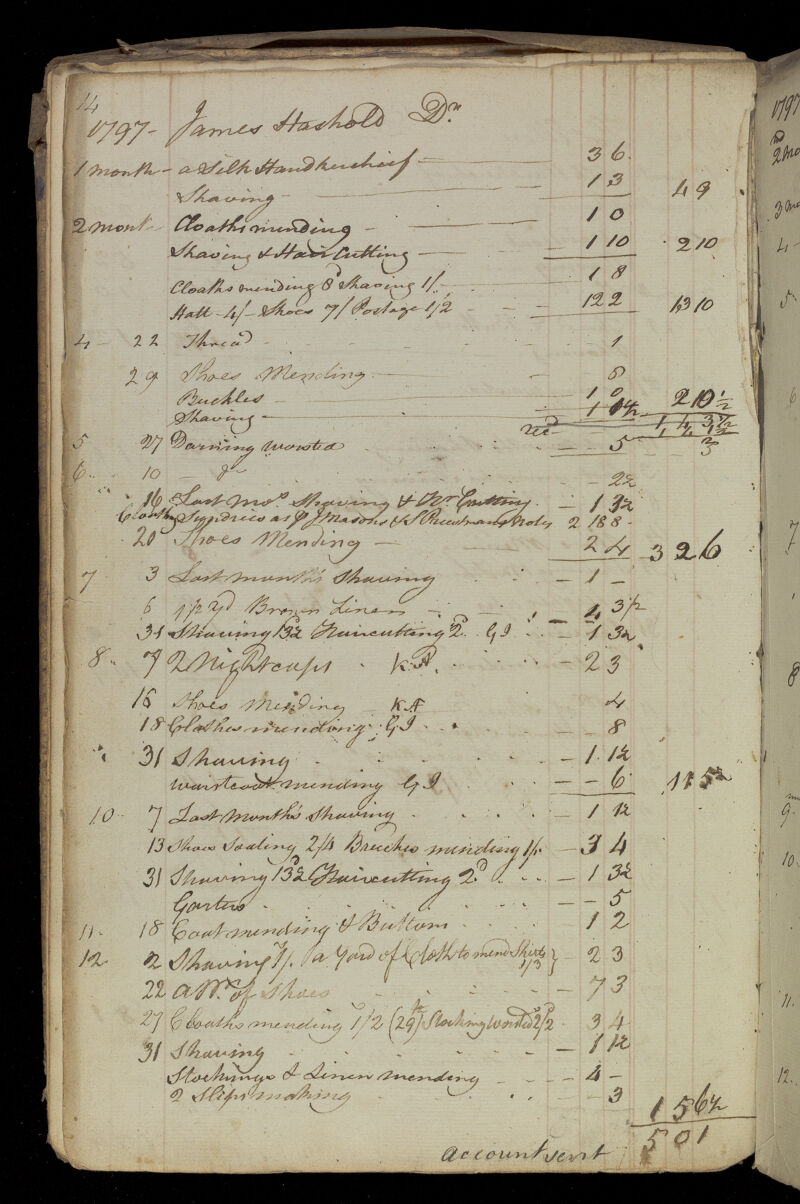 14
1797- James Hashold Dr.
1 month - a Silk Handkerchief - 3 6
Shaving - 1 3 4 9
2 mont - Cloaths mending - 1 0
Shaving & Hair Cutting - 1 10 2 10
Cloaths mending 8d Shaving 1/. 1 8
Hatt 4/- Shoes 7/ Postage 1/2 12 2 13 10
4 - 22 Thread - 1
29 Shoes Mending - 8
Buckles - 1 0 2 10 1/2
Shaving - 1 1 1/2
5 27 Darning worsted - 5
6 10 do 2 1/2
16 Last Mos. Shaving & Hr Cutting - 1 3 1/2
Cloathg Syndries as p J Masons & Notes 2 18 8
20 Shoes Mending - 2 4 3 2 6
7 3 Last month's Shaving - 1 -
6 1 1/2 yd Brown Linen - 4 3 1/2
31 Shaving 13 1/2 Haircutting 2d. GI - 1 3 1/2
8 7 2 Nightcaps KA. - 2 3
16 Shoes Mending KA 4
18 Clothes mending GI - 8
31 Shaving - 1 1 1/2
Waistcoat mending GI - - 6 1 1 5 1/2
10 - 7 Last Month's Shaving - 1 1 1/2
13 Shoes Soaling 2/4 Breeches mending 1/. - 3 4
31 Shaving 13 1/2 Haircutting 2d. - 1 3 1/2
Garters - - 5
11 - 18 Coat mending & Buttons 1 2
12 - 2 Shaving 1/. a Yard of Cloth to mend Shirts 1/3 } - 2 3
22 a Pr. of Shoes - 7 3
27 Cloaths mending 1/2 (29th) Stocking Worsted 2/2 - 3 4
31 Shaving - 1 1 1/2
Stockings & Linen mending - 4 -
2 Slips making - 3 1 5 6 1/2
Account sent 5 0 1
1797